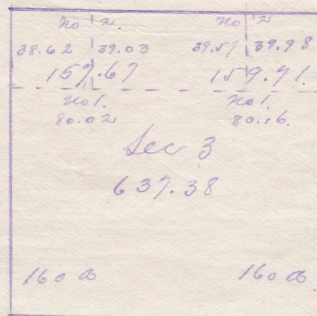 No 2. No 2
38.62 39.03 39.57 39.98
157.67 159.71.
No 1. No 1.
80.02 80.16.
Sec 3
637.38
160 a 160 a.